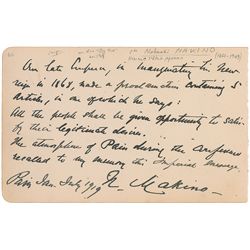 Nobuaki MAKINO (1861-1949)
Our late Emperor, in inaugurating his new
reign in 1868, made a proclamation containing 5
articles, in one of which he says:
All the people shall be given opportunity to satisfy
their legitimate desires.
The atmosphere of Paris during the Conference
recalled to my memory this Imperial message
Paris July 1919 N. Makino